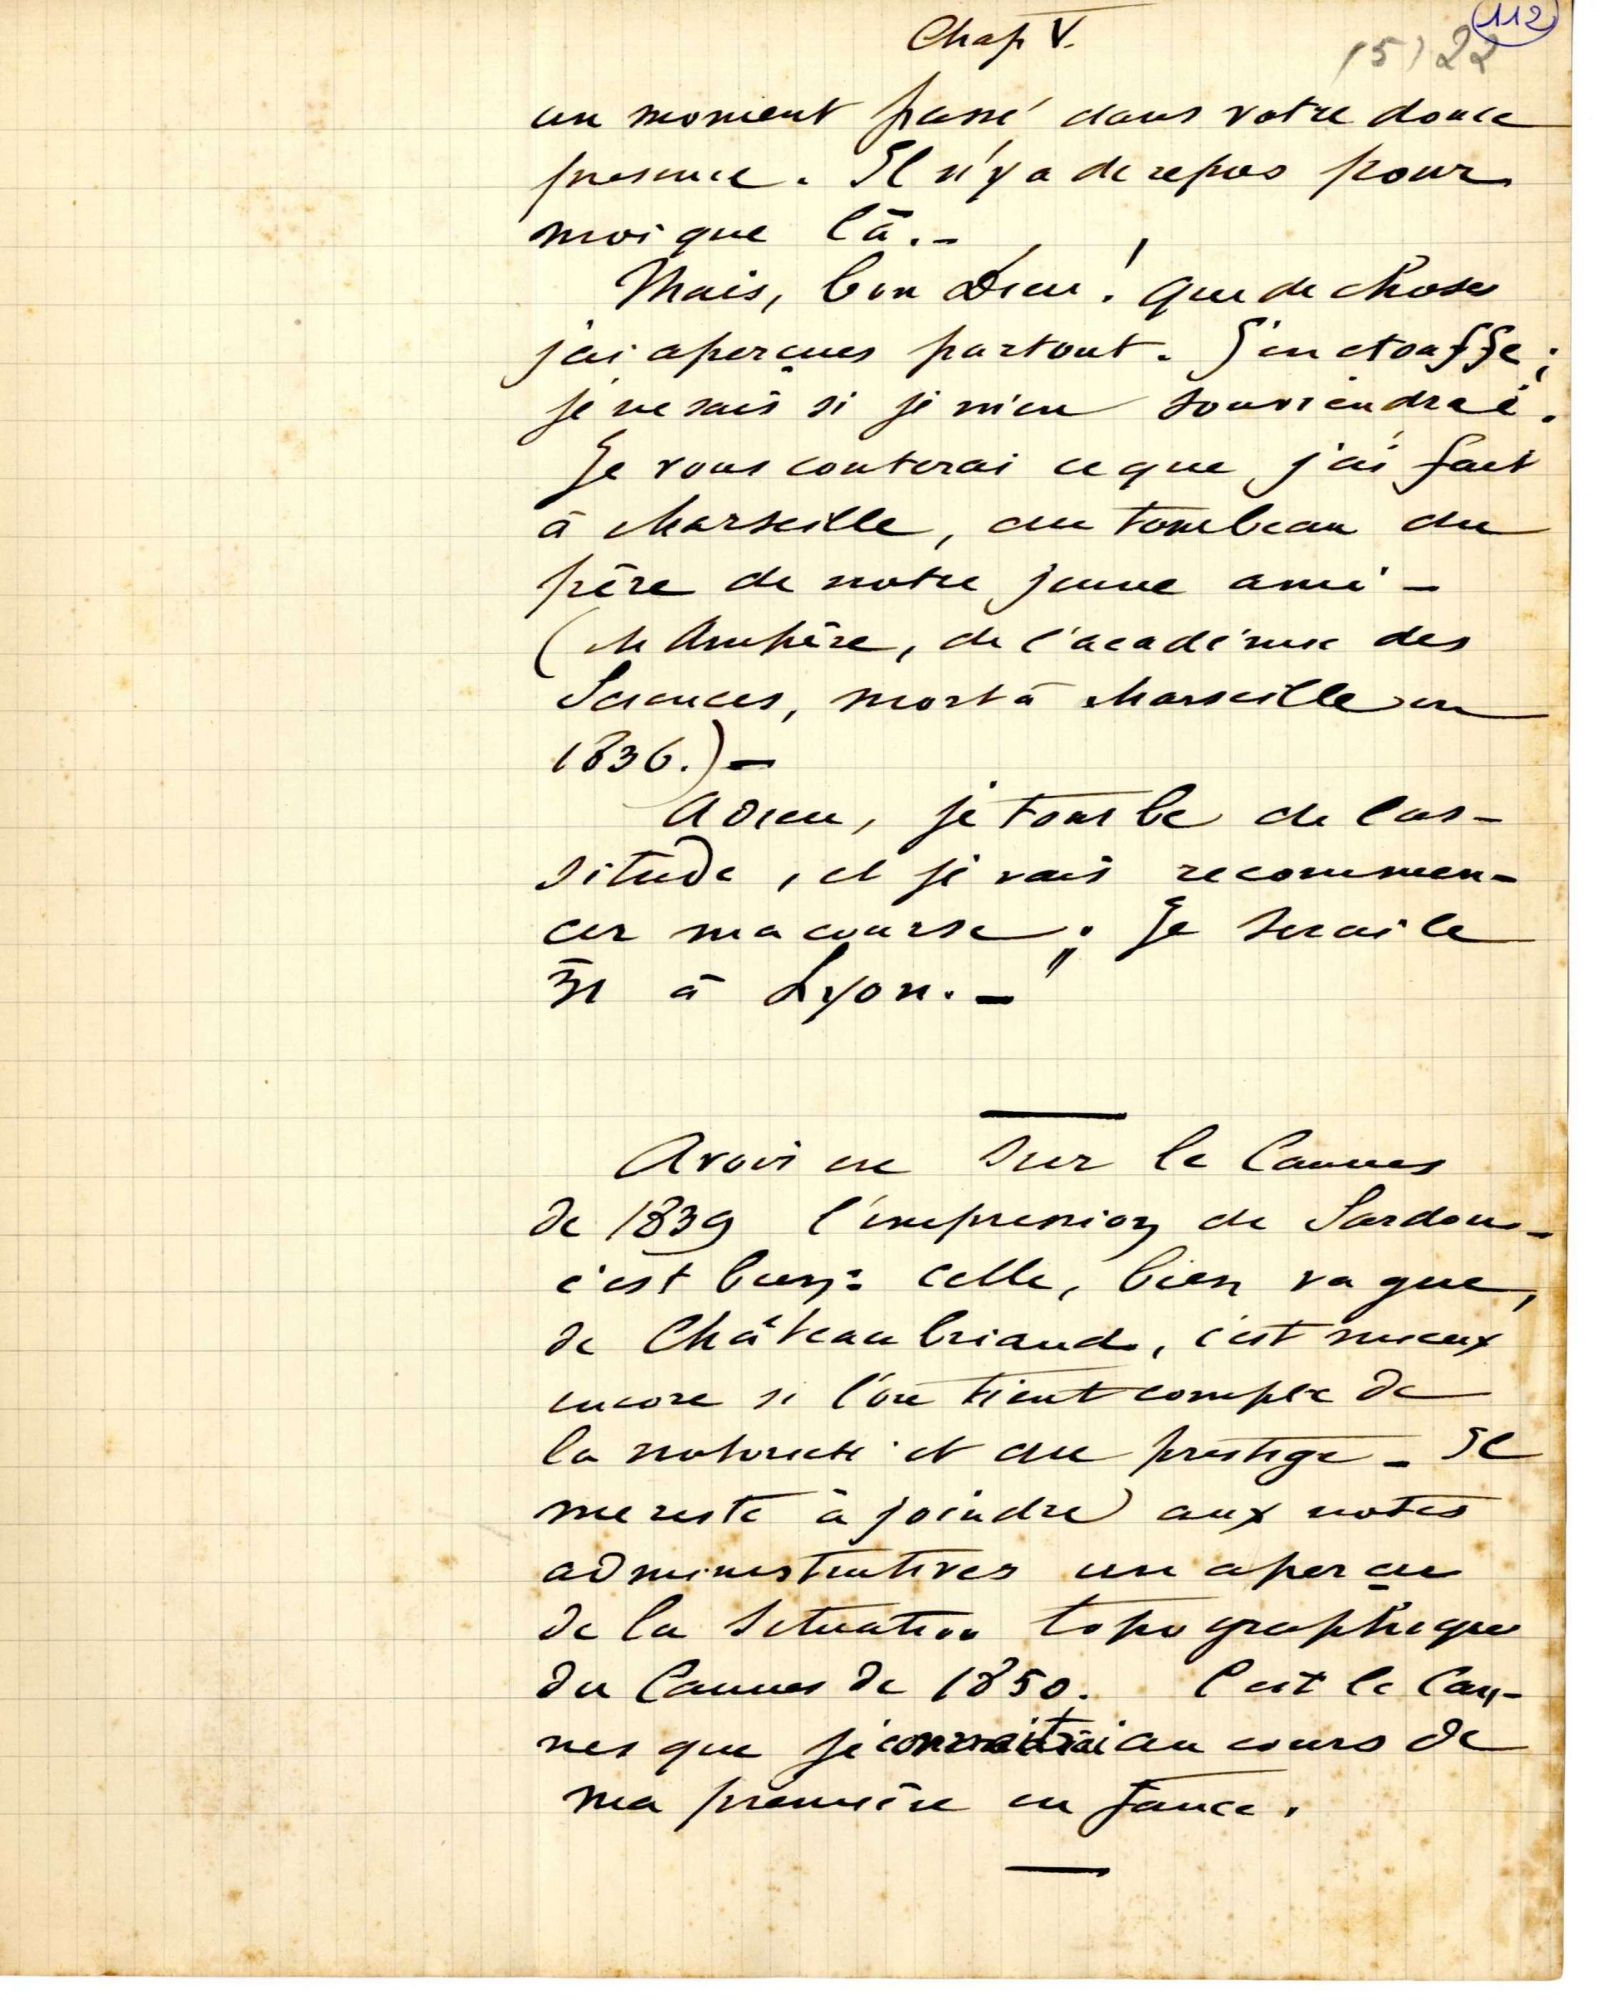 112
Chap V.
(5) 22
un moment passé dans votre douce
presence. Il n'y a de repos pour
moi que là. –
Mais, bon Dieu! que de choses
j'ai aperçues partout. J'en étouffe;
je ne sais si je m'en souviendrai.
Je vous conterai ce que j'ai fait
à Marseille, au tombeau du
père de notre jeune ami –
(M Ampère, de l'académie des
Sciences, mort à Marseille en
1836.) –
Adieu, je tombe de las-
situde, et je vais recommen-
cer ma course; Je serai le
31 à Lyon. –"
Avoir eu sur le Cannes
de 1839 l'impression de Sardou –
c'est bien: celle, bien vague,
de Châteaubriand, c'est mieux
encore si l'on tient compte de
la notoriété et du prestige – Il
me reste à joindre aux notes
administratives un aperçu
de la situation topographique
du Cannes de 1850. C'est le Can-
nes que je connaitrai au cours de
ma première enfance.